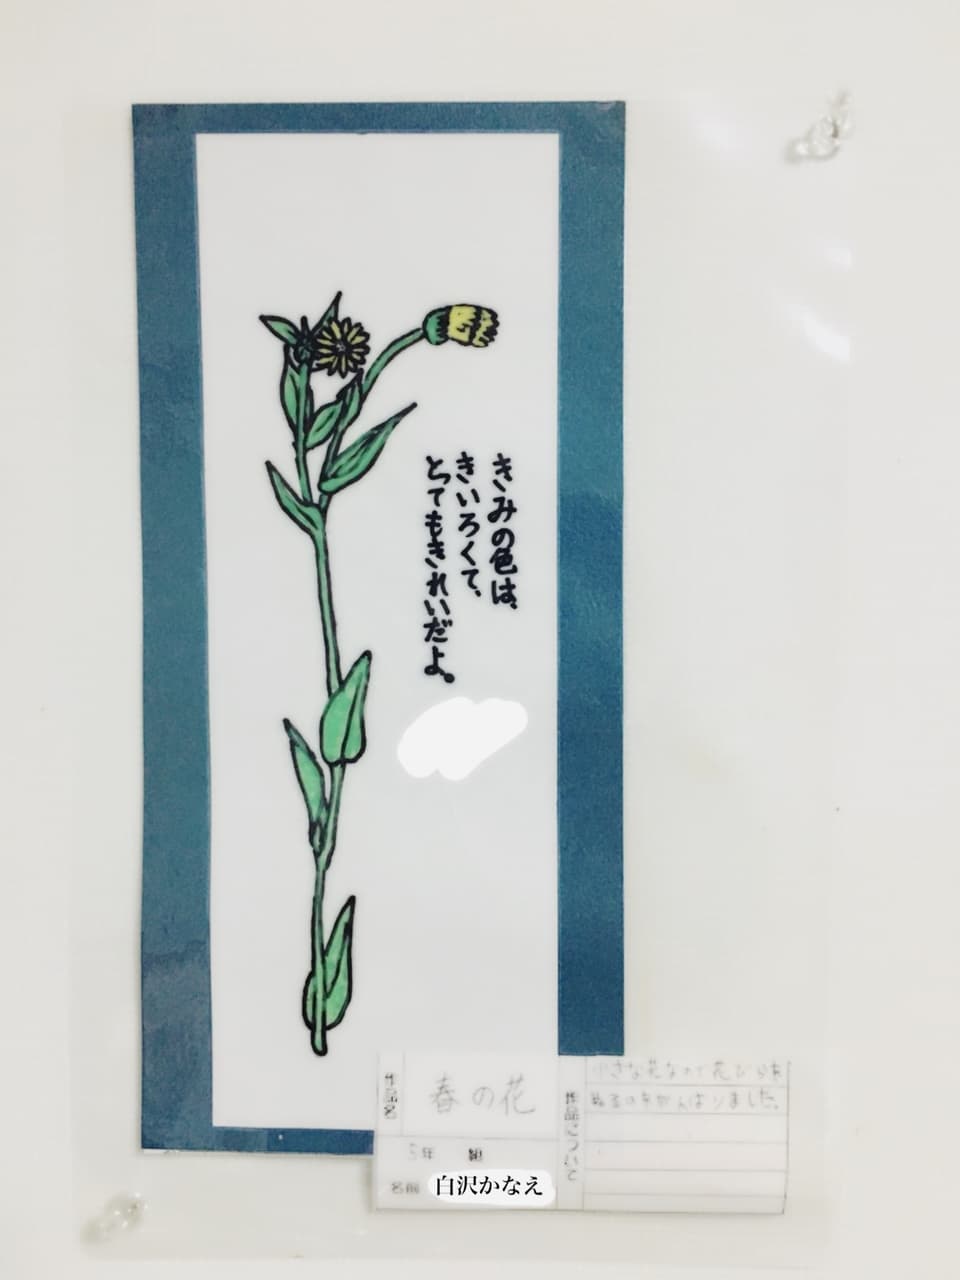 きみの色は、
きいろくて、
とてもきれいだよ。
作品名
春の花
5年 組
名前 白沢かなえ
作品について
小さな花なので花びらを
ぬるのをがんばりました。